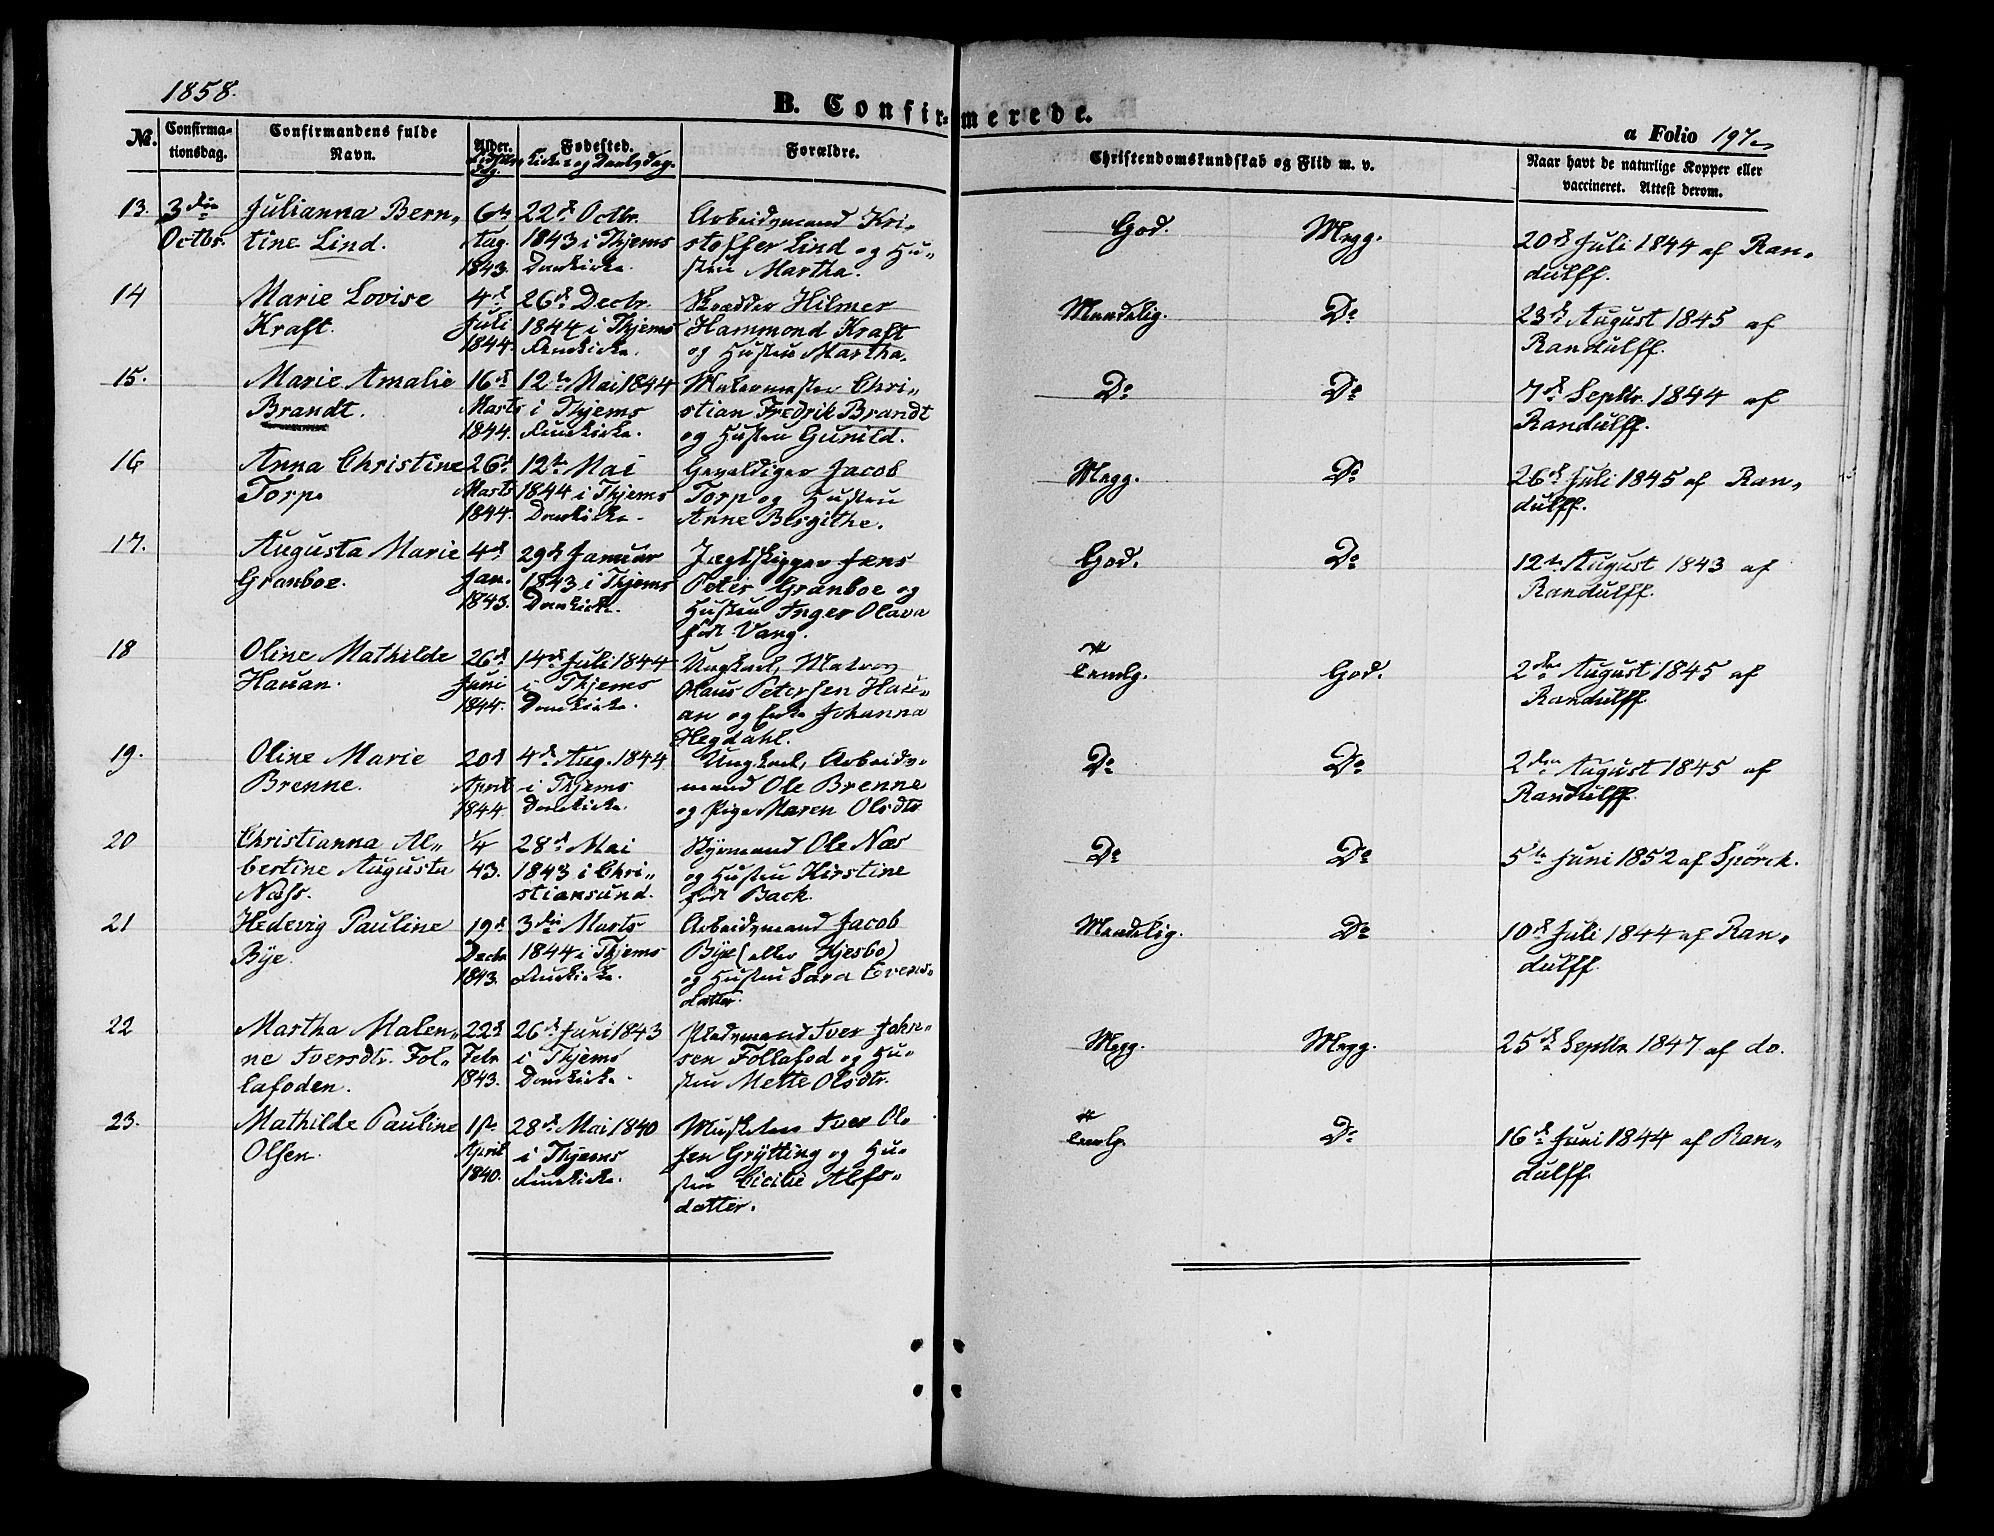 1858.
B. Confirmerede.
a Folio 197
No.
Confirma-
tionsdag.
Confirmandens fulde
Navn.
Alder.
Fødested.
Kirke og Daabsdag.
Forældre.
Christendomskundskab og Flid m. v.
Naar havt de naturlige Kopper eller
vaccineret. Attest derom.
13. 3die Octbr.
Julianna Bern„
tine Lind.
6te Aug. 1843.
22d Octbr.
1843 i Thjems
Domkirke.
Arbeidsmand Kri„
stoffer Lind og Hu„
stru Martha.
God. Megg.
20d Juli 1844 af Ran„
dulff.
14
Marie Lovise
Kraft.
4d Juli 1844.
26d Decbr.
1844 i Thjems
Skrædder Hilmer
Hammond Kraft
og Hustru Martha.
Maadelig. Do
23d August 1845 af
Randulff.
15.
Marie Amalie
Brandt.
16d Marts 1844.
12te Mai 1844
i Thjems
Malermester Chri„
stian Fredrik Brandt
og Hustru Gunild.
Do Do
7d Septbr. 1844 af
Randulff.
16
Anna Christine
Torp.
26d Marts 1844.
12te Mai
1844 i Thjems
Domkirke.
Gevaldiger Jacob
Torp og Hustru
Anne Birgithe.
Megg. Do
26d Juli 1845 af Ran„
dulff.
17.
Augusta Marie
Granboe.
4d Jan. 1843.
29d Januar
1843 i Thjems
Domkirke.
Jægtskipper Jens
Peter Granboe og
Hustru Inger Olava
født Vang.
God. Do
12te August 1843 af
Randulff.
18
Oline Mathilde
Hauan.
26d Juni 1844.
14d Juli 1844
i Thjems
Domkirke.
Ungkarl, Matros
Olaus Petersen Hau„
an og Enke Johanna
Hegdahl.
Temlg. God.
2den August 1845 af
Randulff.
19.
Oline Marie
Brenne.
20d April 1844.
4d Aug. 1844
i Thjems
Domkirke.
Ungkarl, Arbeids„
mand Ole Brenne
og Pige Maren Olsdtr
Do Do
2den August 1845 af
Randulff.
20
Christianna Al„
bertine Augusta
Næss.
1/4 43.
28d Mai
1843 i Chri„
stiansund.
Styrmand Ole Næs
og Hustru Kirstine
født Back.
Do Do
5te Juni 1852 af Spörck.
21
Hedevig Pauline
Bye.
19d Decbr 1843.
3die Marts
1844 i Thjems
Arbeidsmand Jacob
Bye (eller Kjesbo)
og Hustru Sara Evens„
datter.
Maadelig. Do
10d Juli 1844 af Ran„
dulff.
22
Martha Malen„
ne Iversdtr. Fol„
lafoden.
22d Febr 1843.
26d Juni 1843
i Thjems
Domkirke.
Pladsmand Iver John„
sen Follafod og Hu„
stru Mette Olsdtr.
Megg. Megg.
25d Septbr 1847 af do.
23.
Mathilde Pauline
Olsen.
1ste April 1840.
28d Mai 1840
i Thjems
Musketeer Iver Ol„
sen Grytting og Hu„
stru Cicilie Alefs„
datter.
Temlg. Do
16d Juni 1844 af Ran„
dulff.